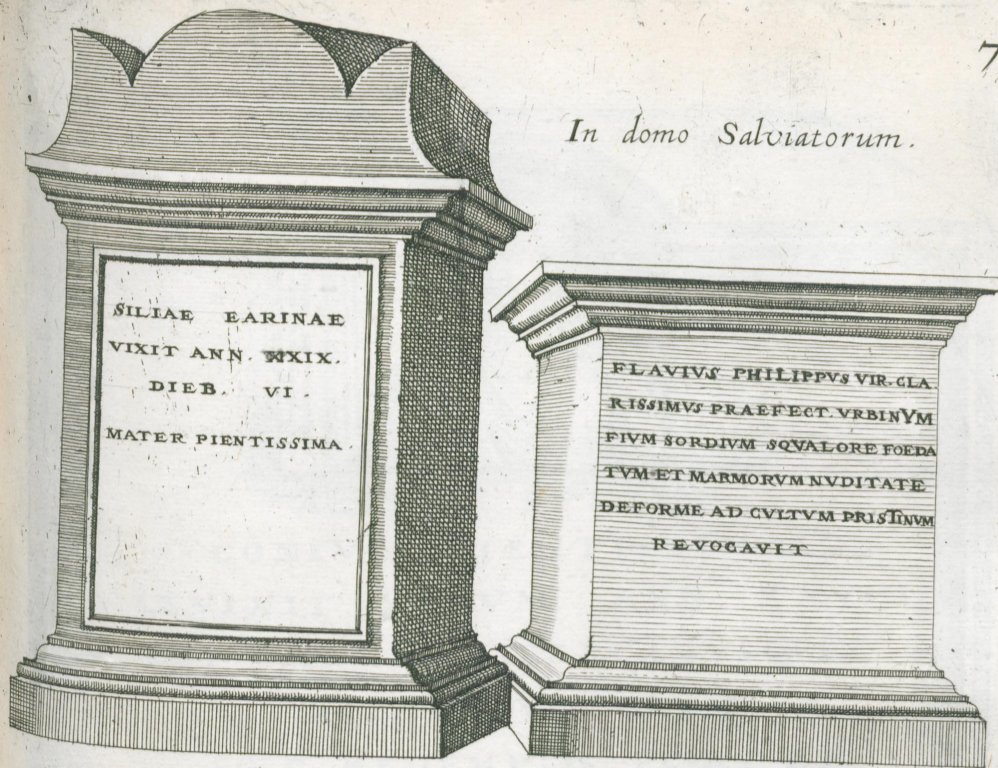 7
In domo Salviatorum.
SILIAE EARINAE
VIXIT ANN. XXIX.
DIEB. VI.
MATER PIENTISSIMA
FLAVIVS PHILIPPVS VIR. CLA
RISSIMVS PRAEFECT. VRBINYM
FIVM SORDIVM SQVALORE FOEDA
TVM ET MARMORVM NVDITATE
DEFORME AD CVLTVM PRISTINVM
REVOCAVIT